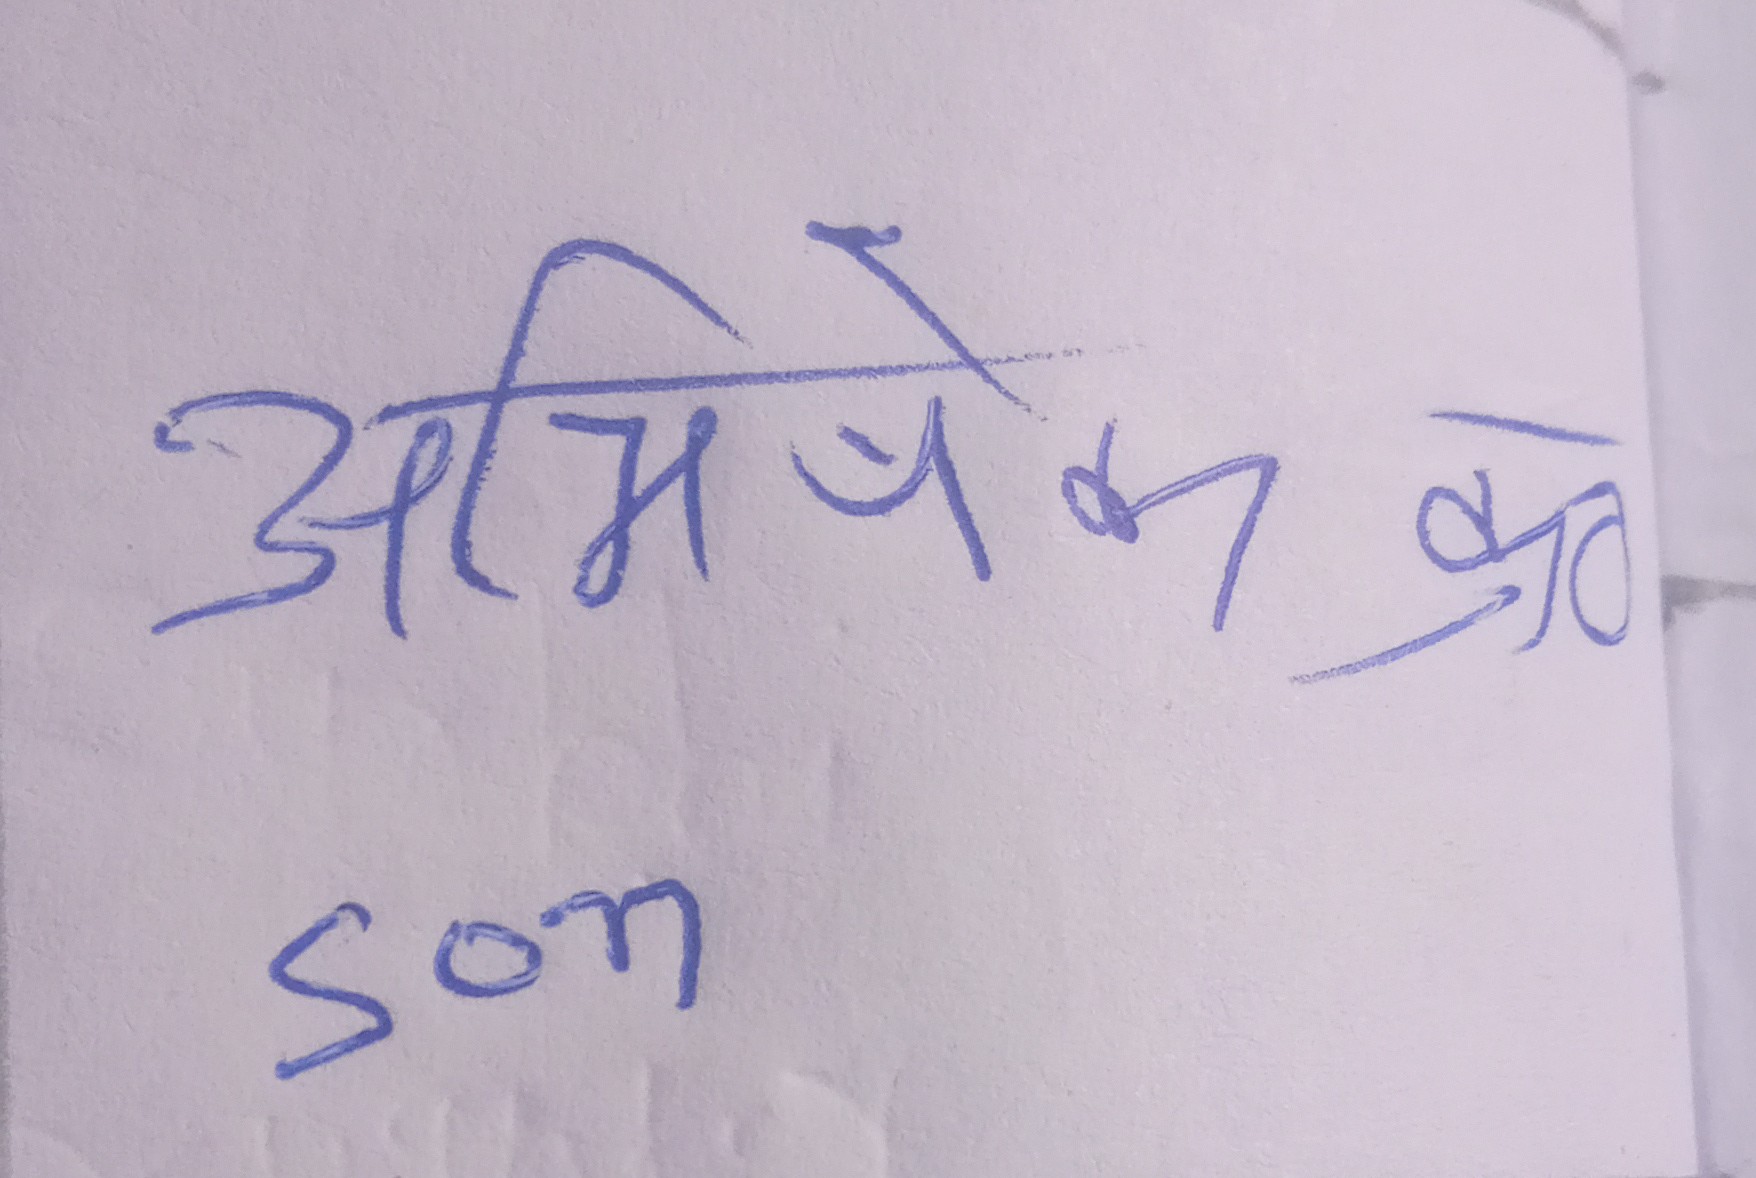 अभिषेक
son